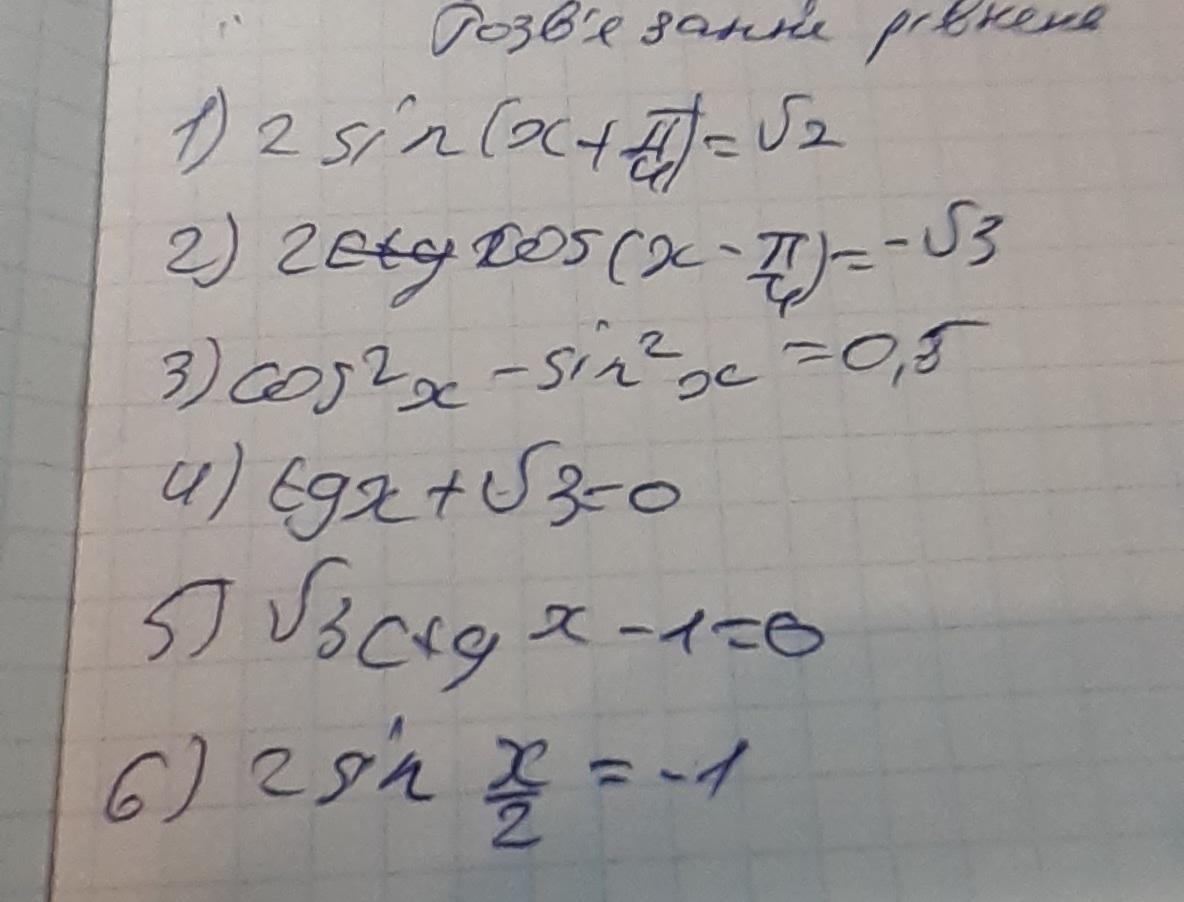 Розв'язання рівнень
1) 2 sin(x + π/4) = √2
2) 2 cos(x - π/4) = -√3
3) cos²x - sin²x = 0,5
4) tgx + √3 = 0
5) √3 ctg x - 1 = 0
6) 2 sin x/2 = -1